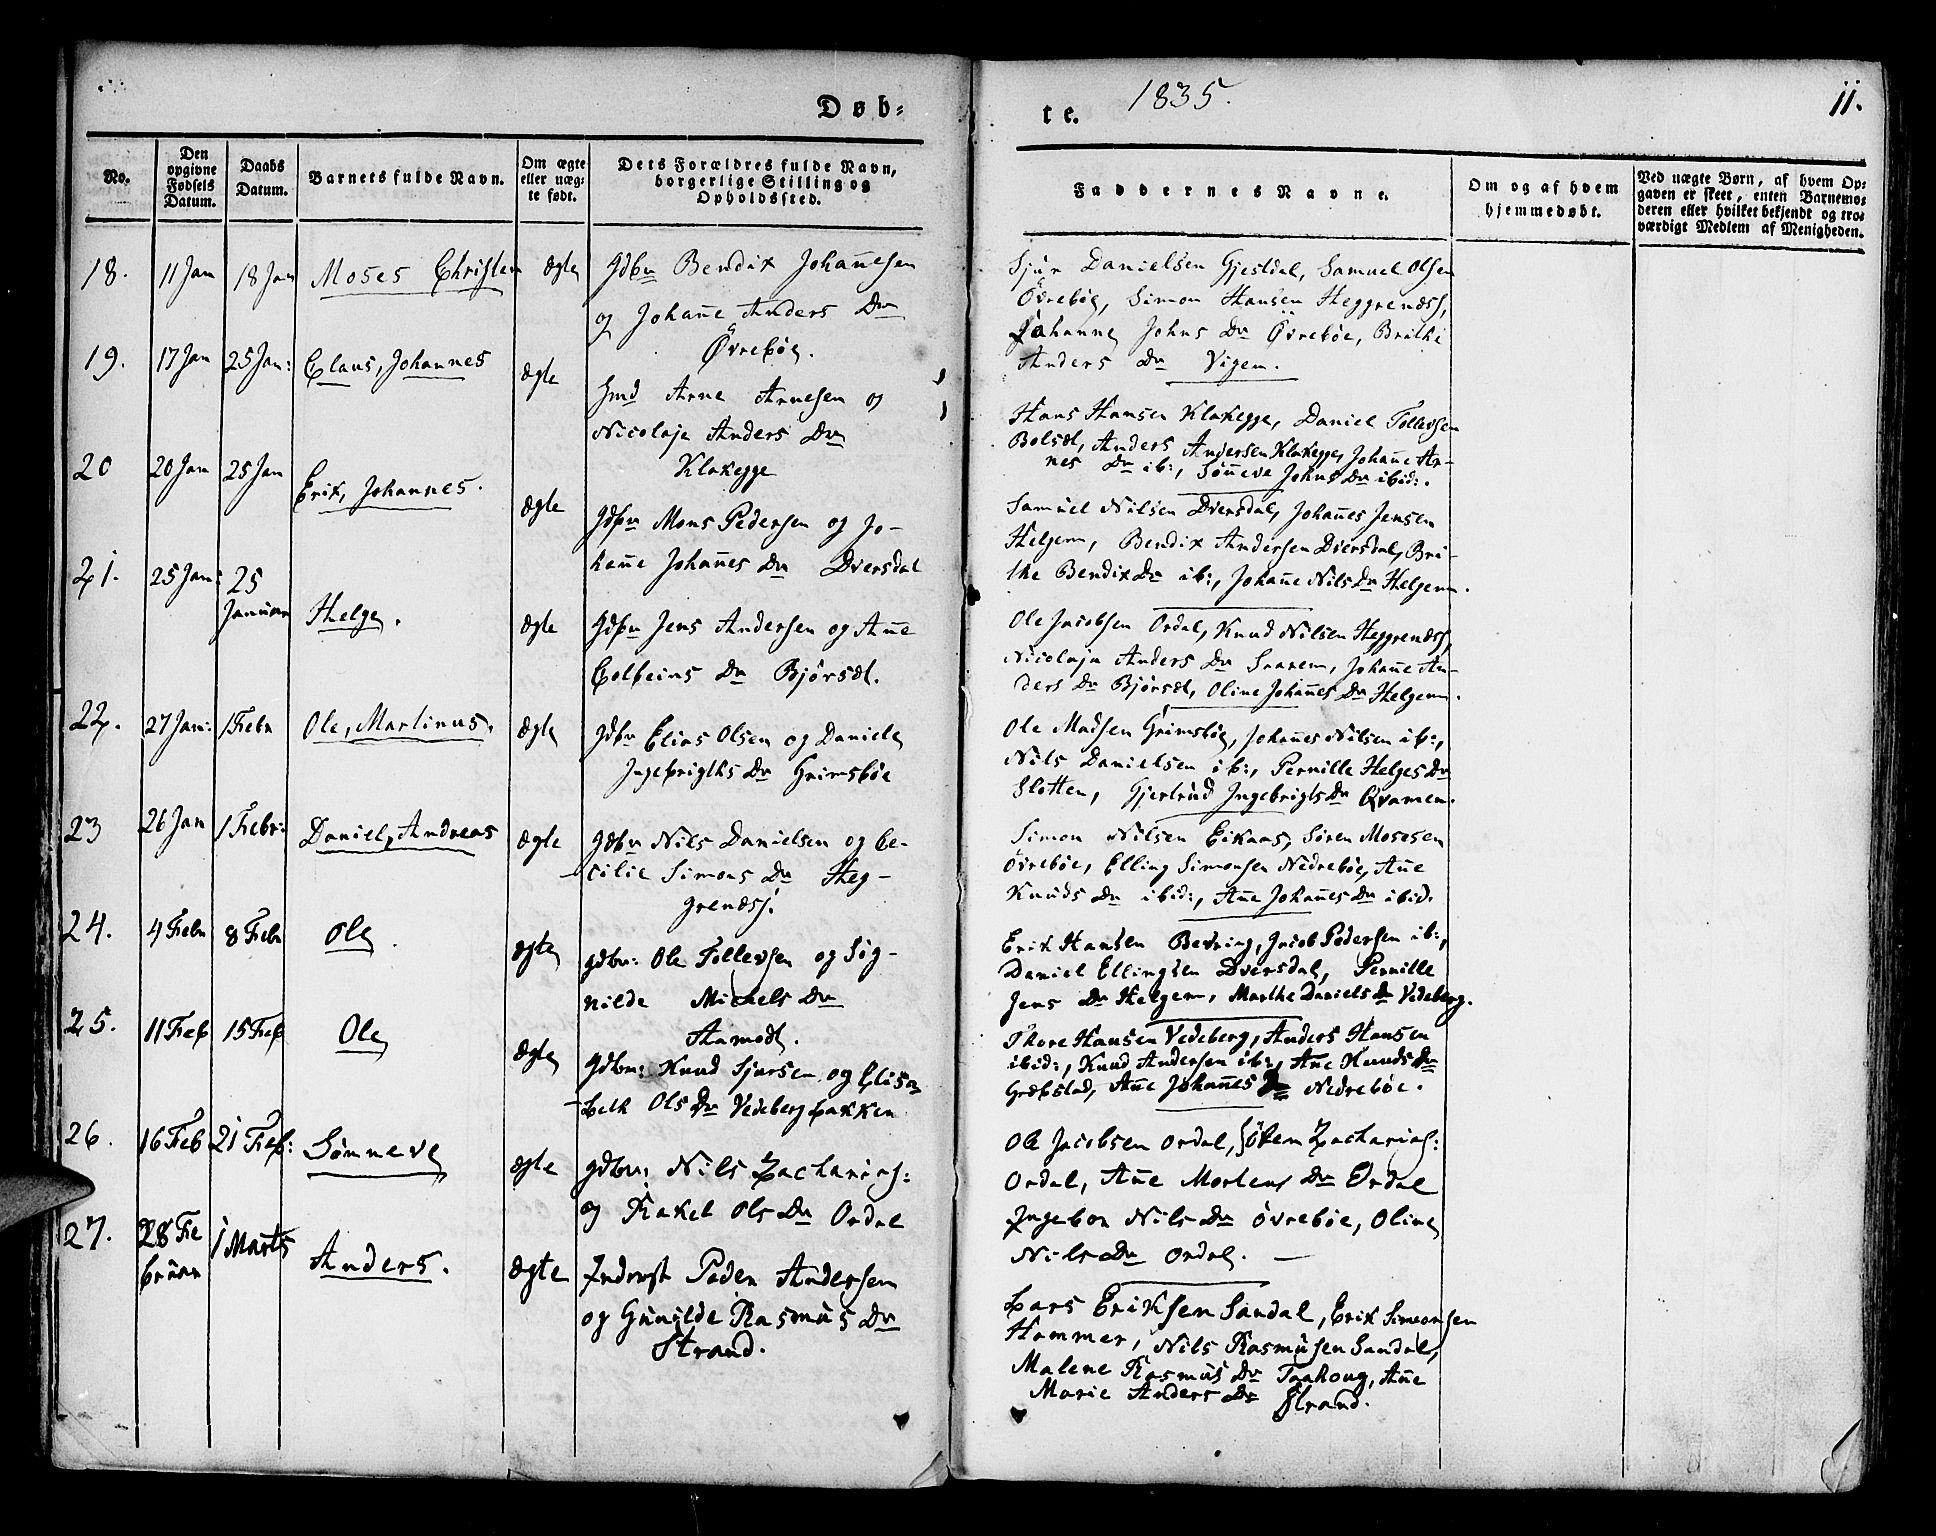 Døb=
te. 1835. 11.
No.
Den opgivne Fødsels Datum.
Daabs Datum.
Barnets fulde Navn.
Om ægte eller uæg=te født.
Dets Forældres fulde Navn, borgerlige Stilling og Opholdssted.
Faddernes Navne.
Om og af hvem hjemmedøbt.
Ved uægte Børn, af hvem Op=
gaven er skeet, enten Barnemo=
deren eller hvilket bekjendt og tro=
værdigt Medlem af Menigheden.
18. 11 Jan 18 Jan Moses Christen Ægte Gdbr Bendix Johan̄esen
og Johan̄e Anders Dr
Øvrebøe.
Sjur Danielsen Gjestdal, Samuel Olsen
Øvrebøe, Simon Hansen Heggrenæss,
Johanne Johns Dr Øvrebøe, Brithe
Anders Dr Vigen.
19. 17 Jan 25 Jan: Claus, Johannes Ægte Hmd Arne Arnesen og
Nicolaje Anders Dr
Klakegge
Hans Hansen Klakegge, Daniel Tollevsen
Bolsæt, Anders Andersen Klakegge, Johan̄e Ar-
nes Dr ib:, Søn̄eva Johns Dr ibid:.
20 20 Jan 25 Jan Erik, Johannes. Ægte Gdbr Mons Pedersen og Jo-
han̄e Johan̄es Dr Dversdal
Samuel Nilsen Dversdal, Johan̄es Jensen
Helgem, Bendix Andersen Dversdal, Bri-
the Bendix Dr ib:, Johan̄e Nils Dr Helgem.
21. 25 Jan: 25 Januar Helge. Ægte Gdbr Jens Andersen og An̄e
Colbeins Dr Bjørsæt.
Ole Jacobsen Ordal, Knud Nilsen Heggrenæss,
Nicolaja Anders Dr Saanem, Johan̄e An-
ders Dr Bjørsæt, Oline Johan̄es Dr Helgem.
22. 27 Jan: 1 Febr Ole, Martinus. Ægte Gdbr Elias Olsen og Daniele
Ingebrigths Dr Grimsbøe
Ole Madsen Grimsbøe, Johan̄es Nilsen ib:,
Nils Danielsen ib:, Pernille Helges Dr
Slotten, Gjertrud Ingebrigts Dr Qvamen.
23 26 Jan 1 Febr: Daniel, Andreas Ægte Gdbr Nils Danielsen og Ce-
cilie Simons Dr Heg-
grenæss.
Simon Nilsen Eikaas, Søren Mosesen
Øvrebøe, Elling Simonsen Nedrebøe, An̄e
Knuds Dr ibid:, An̄e Johan̄es Dr ibid.
24. 4 Febr 8 Febr Ole. Ægte Gdbr: Ole Tollevsen og Sig-
nilde Michels Dr
Aamodt.
Erik Hansen Bevring, Jacob Pedersen ib:,
Daniel Ellingsen Dversdal, Pernille
Jens Dr Helgem, Marthe Daniels Dr Vedeberg.
25. 11 Feb 15 Feb Ole Ægte Gdbr: Knud Sjursen og Elisa-
beth Ols Dr Vedebergbakken
Thore Hansen Vedeberg, Anders Hansen
ibid:, Knud Andersen ib:, An̄e Knuds Dr
Græbstad, An̄e Johan̄es Dr Nedrebøe.
26. 16 Feb 21 Feb: Sønneve Ægte Gdbr: Nils Zacharias:
og Rakel Ols Dr Ordal
Ole Jacobsen Ordal, Zacharias:
Ordal, An̄e Mortens Dr Ordal
Ingebor Nils Dr Øvrebøe, Oline
Nils Dr Ordal.
27. 28 Fe bruar 1 Marts Anders. Ægte Inderst Peder Andersen
og Gunilde Rasmus Dr
Strand.
Lars Eriksen Sandal, Erik Simonsen
Hammer, Nils Rasmusen Sandal,
Malene Rasmus Dr Taahoug, An̄e
Marie Anders Dr Strand.